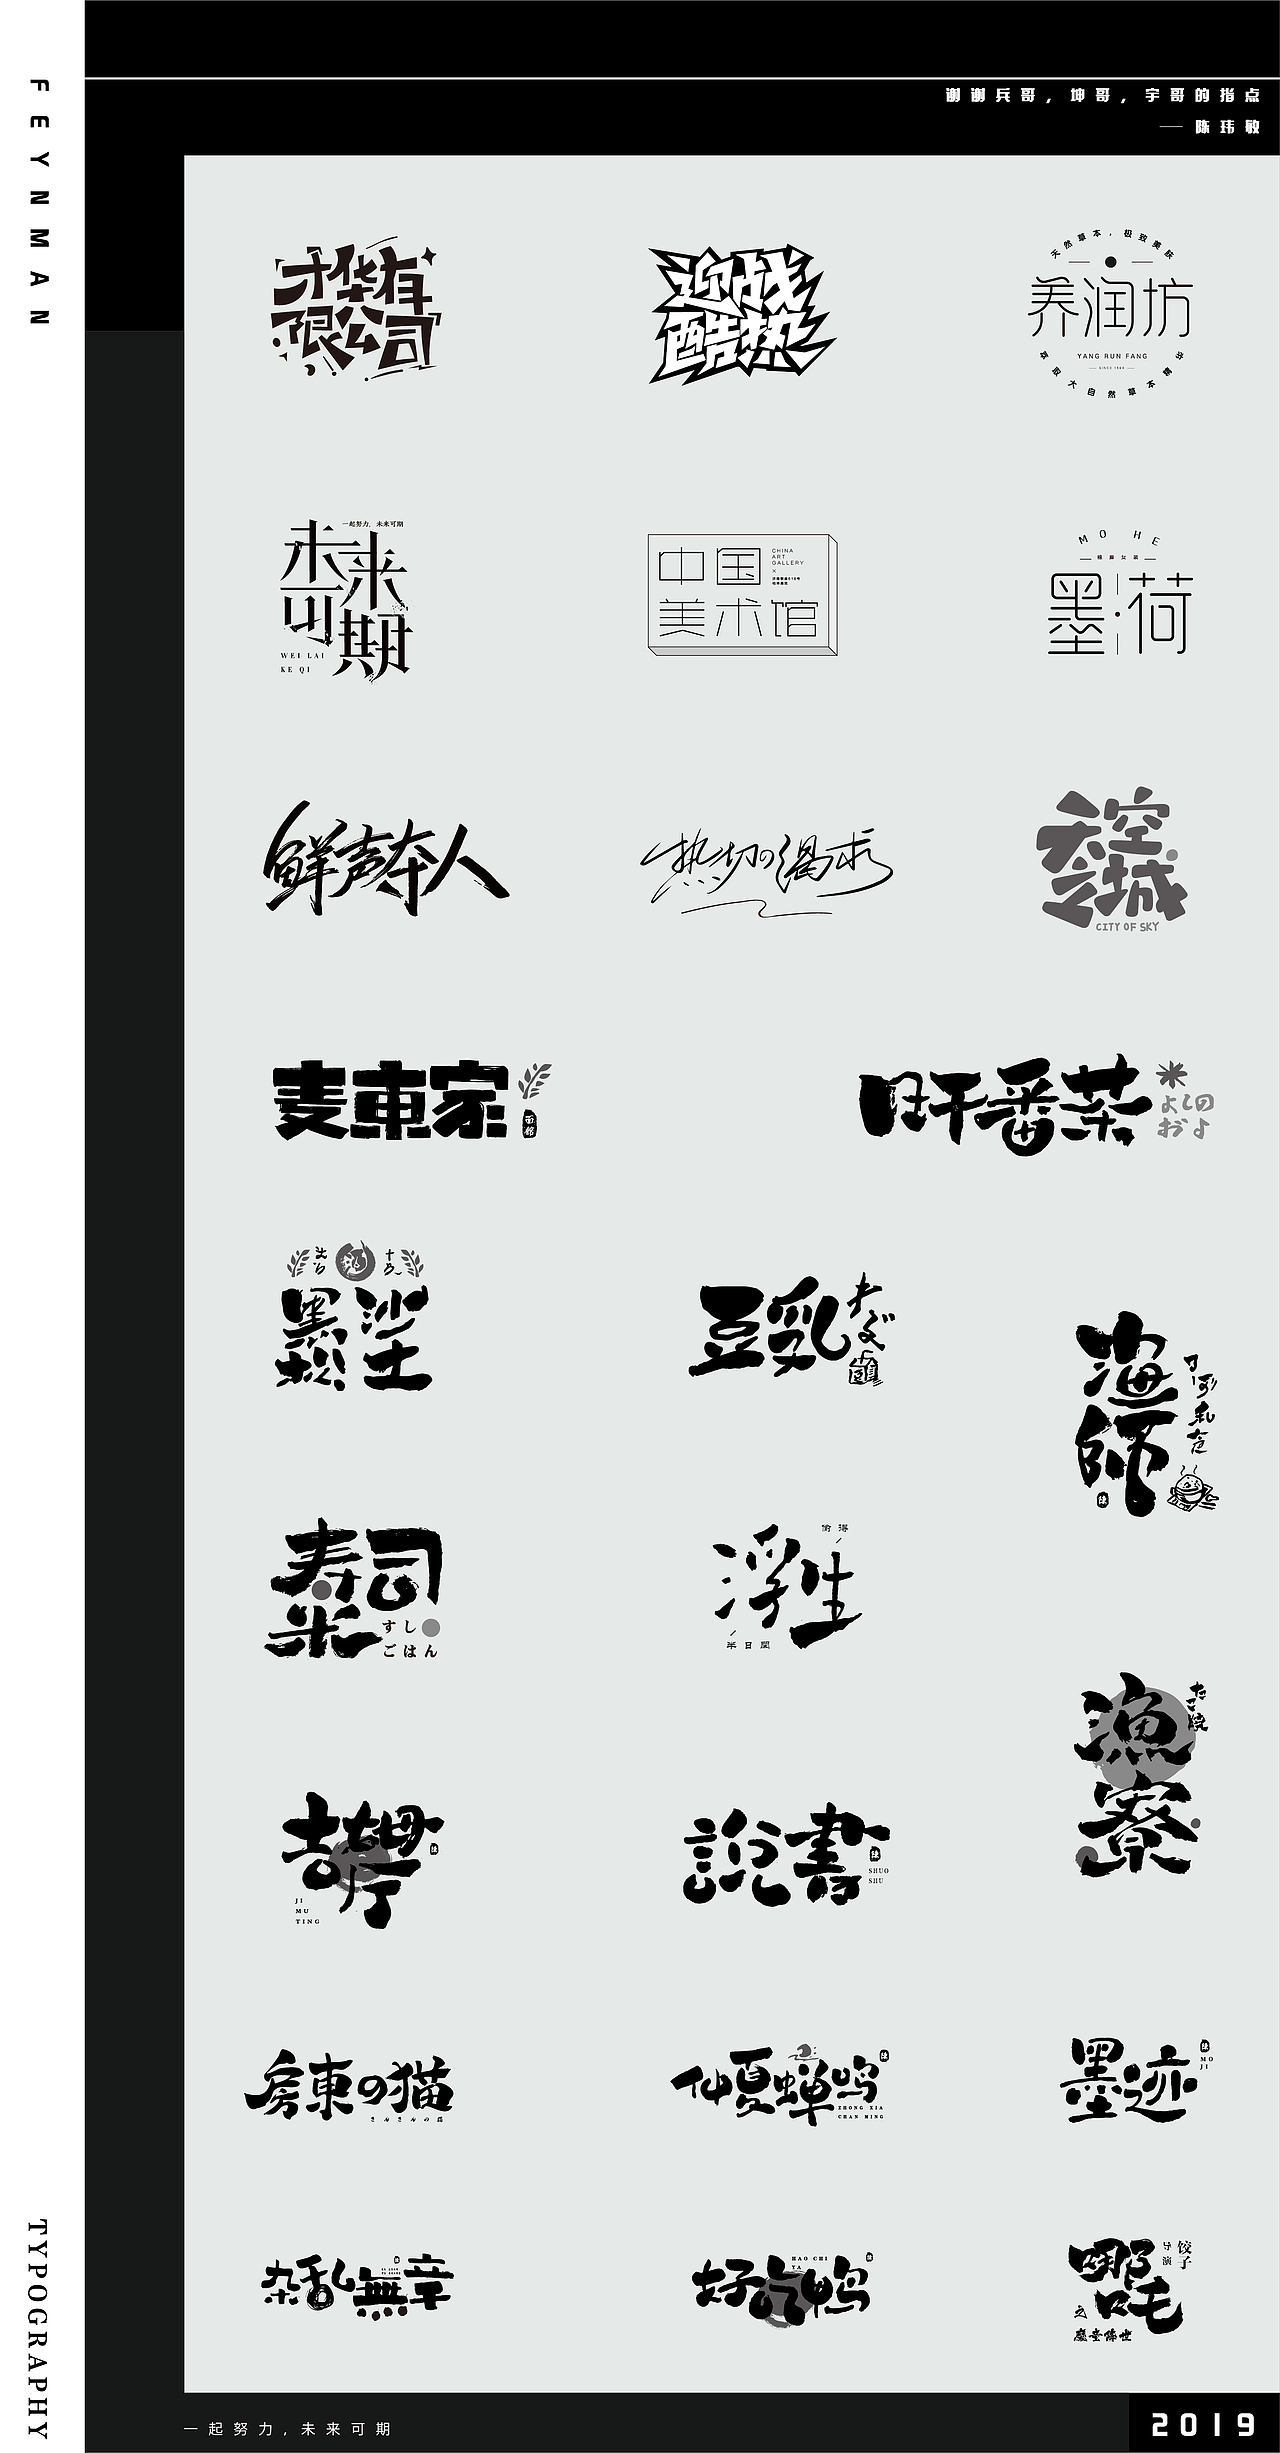 FEYNMAN
谢谢兵哥，坤哥，宇哥的指点
— 陈玮敏
才华有
限公司
迎战
酷热
天然草本，极致美肤
养润坊
YANG RUN FANG
SINCE 1984
萃取大自然草本精华
一起努力，未来可期
未来
可期
WEI LAI
KE QI
中国
CHINA
ART
GALLERY
×
美术馆
MO HE
棉麻女装
墨荷
鲜声夺人
热切の渴求
天空
之城
CITY OF SKY
麦東家
面館
旰番菜
よしの
およ
黑沙
松土
豆乳
漁師
寿司
米
すし
ごはん
偷得
浮生
半日閑
漁寮
吉母
厅
JI
MU
TING
説書
SHUO
SHU
房東の猫
仲夏蝉鸣
ZHONG XIA
CHAN MING
墨迹
MO
JI
杂乱無章
好吃鸭
HAO CHI
YA
哪吒
导演
饺子
之
魔童降世
TYPOGRAPHY
一起努力，未来可期
2019